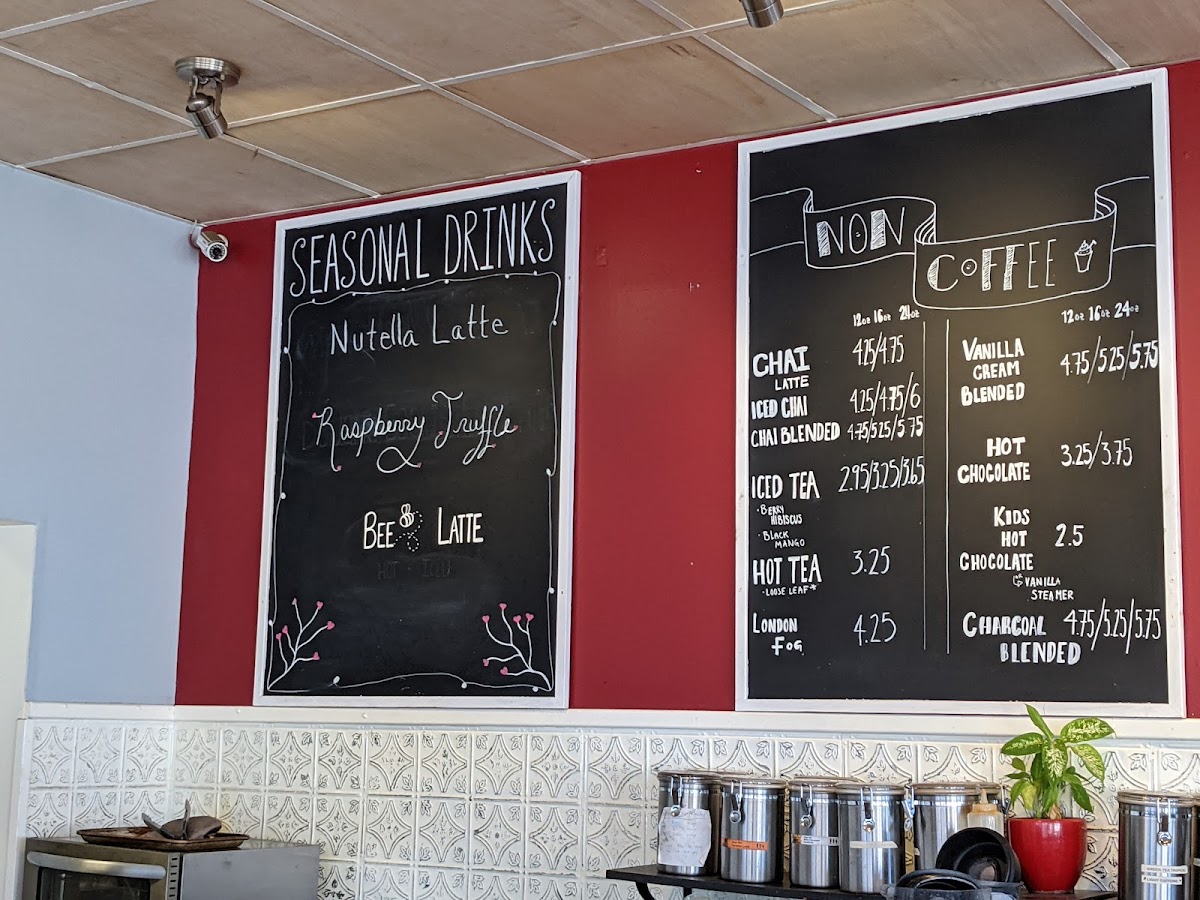 SEASONAL DRINKS
Nutella Latte
Raspberry Truffle
BEE LATTE
HOT ICED
NON
COFFEE
12oz 16oz 24oz
CHAI 4.25/4.75
LATTE
ICED CHAI 4.25/4.75/6
CHAI BLENDED 4.75/5.25/5.75
ICED TEA 2.95/3.25/3.65
• BERRY
HIBISCUS
• BLACK
MANGO
HOT TEA 3.25
• LOOSE LEAF*
LONDON 4.25
FOG
12oz 16oz 24oz
VANILLA 4.75/5.25/5.75
CREAM
BLENDED
HOT 3.25/3.75
CHOCOLATE
KIDS
HOT 2.5
CHOCOLATE
OR VANILLA
STEAMER
CHARCOAL 4.75/5.25/5.75
BLENDED